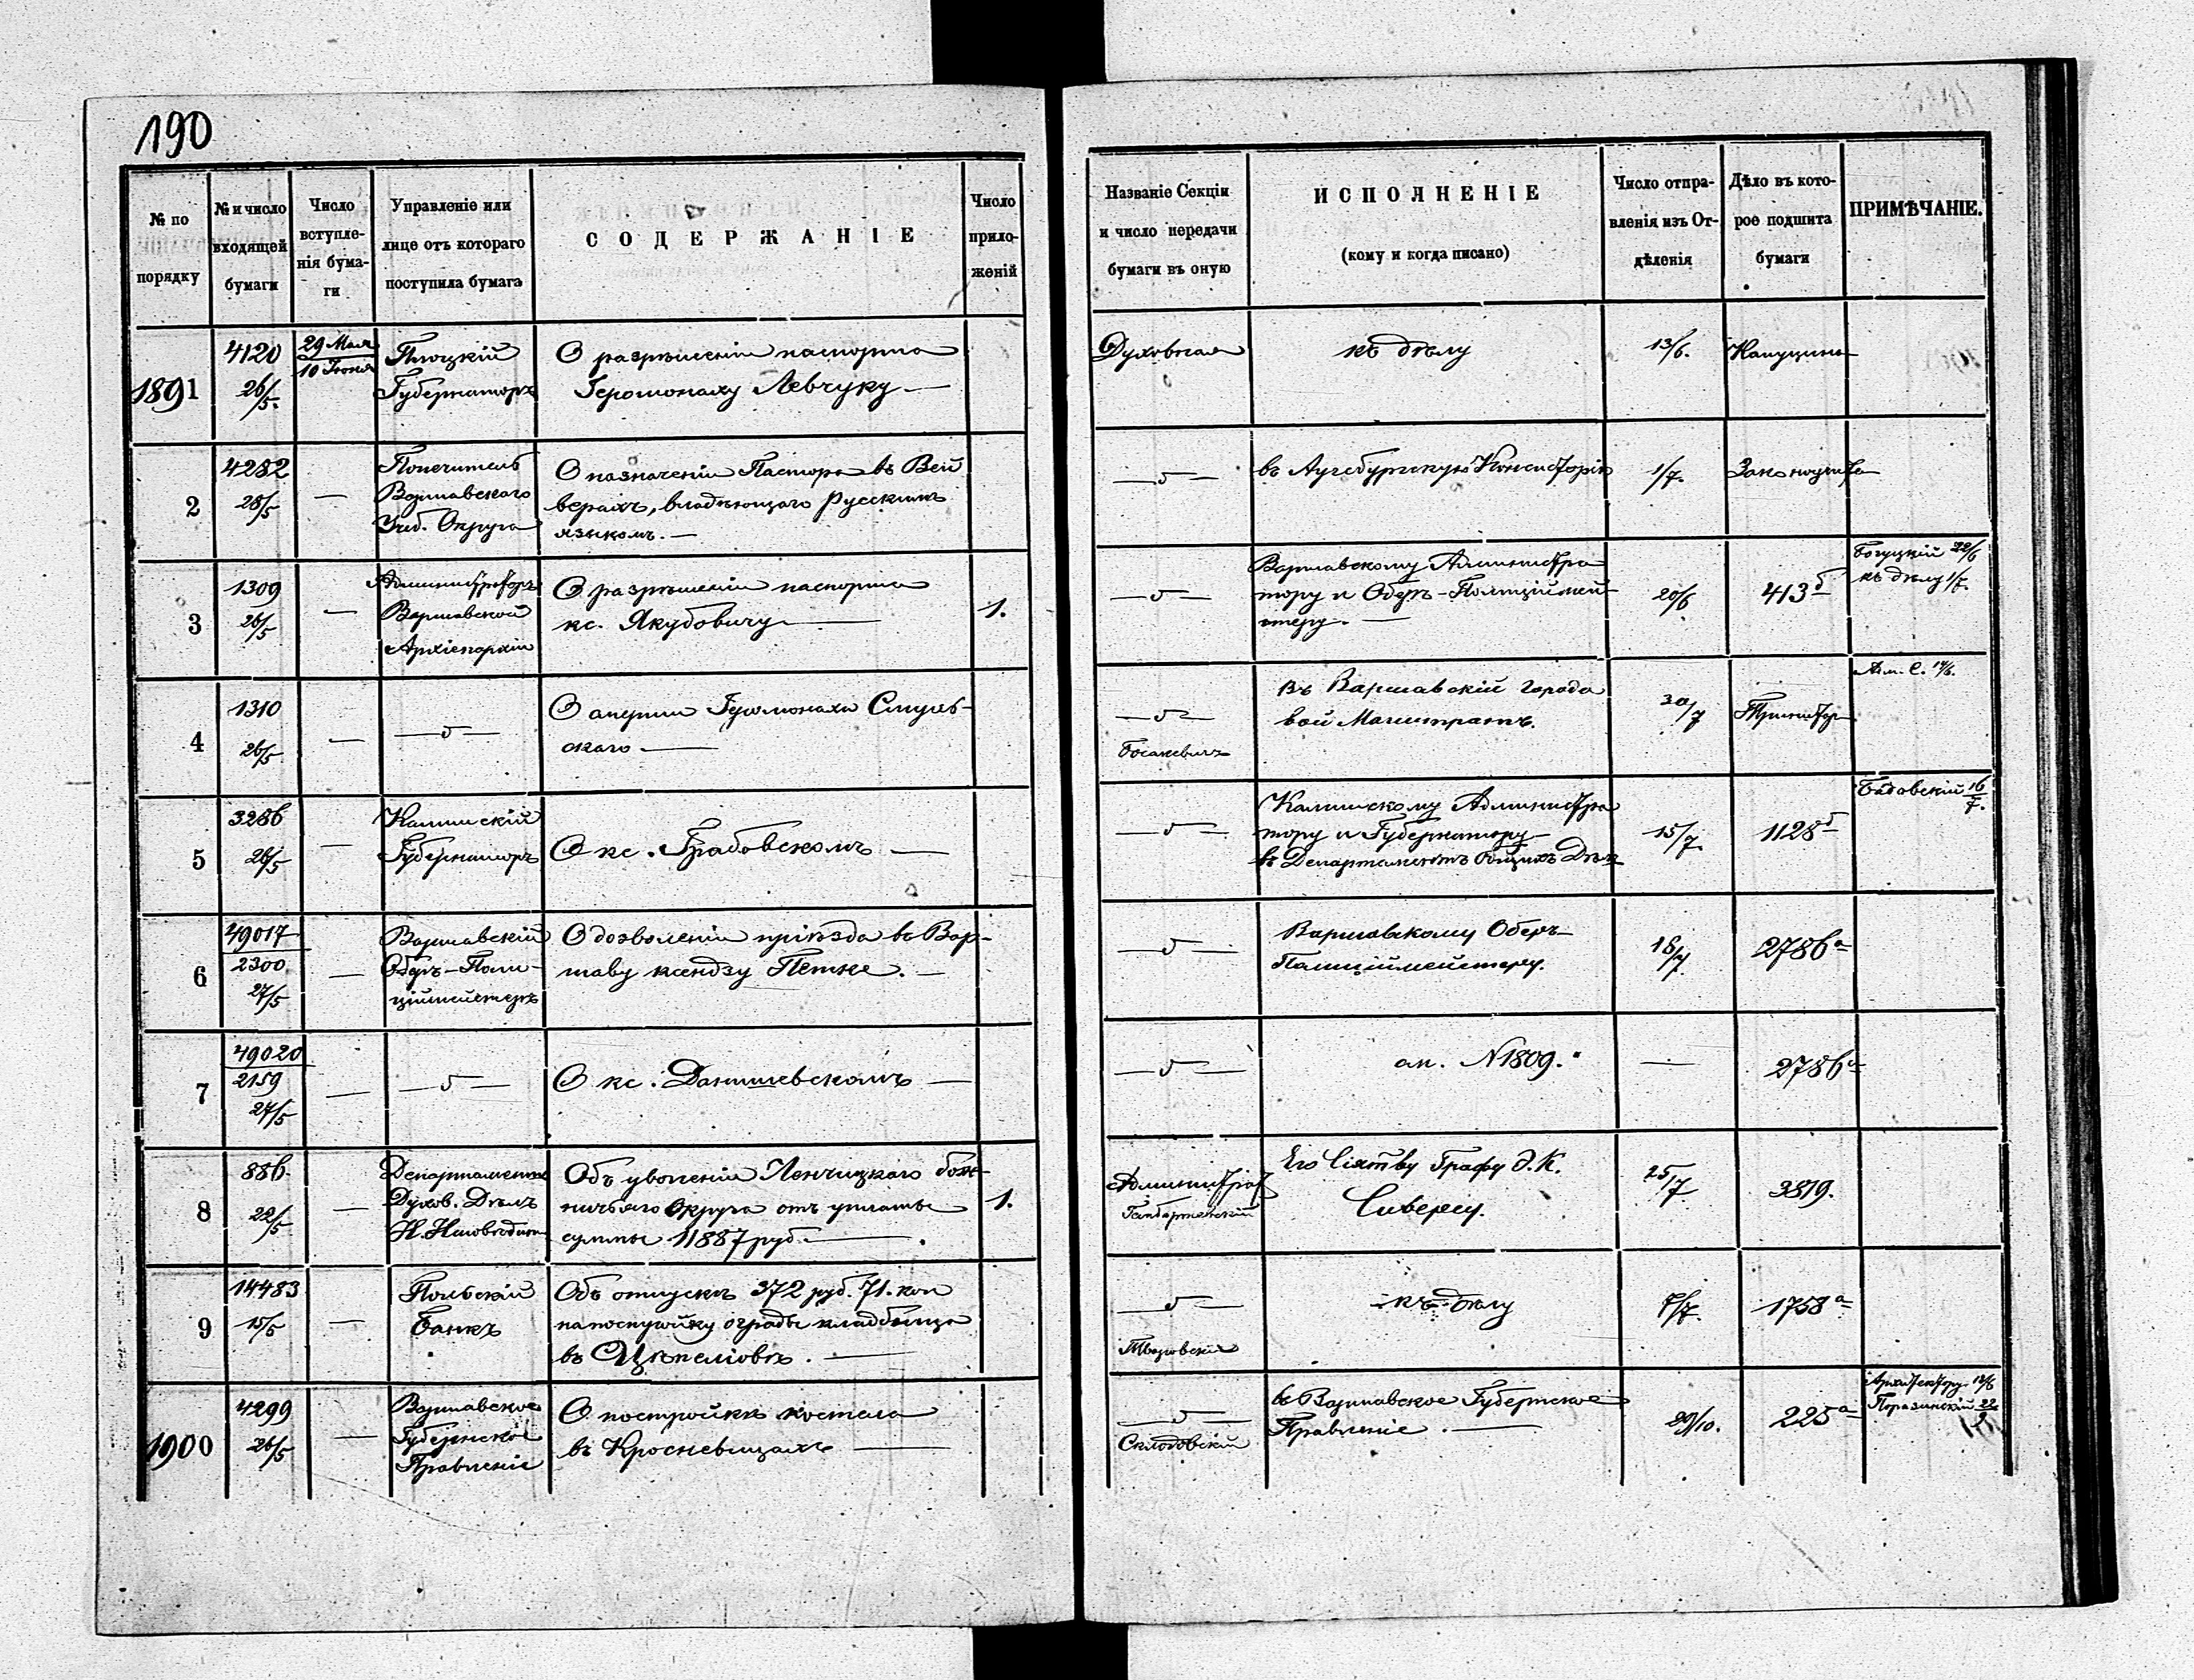 190
№ по порядку
№ и число входящей бумаги
Число вступленія бумаги
Управленіе или лице отъ котораго поступила бумага
СОДЕРЖАНІЕ
Число приложеній
Названіе Секціи и число передачи бумаги въ оную
ИСПОЛНЕНІЕ
(кому и когда писано)
Число отправленія изъ Отдѣленія
Дѣло въ которое подшита бумаги
ПРИМѢЧАНІЕ.
1891
4120
26/5.
29 Мая
10 Іюня
Плоцкій
Губернаторъ
О разрѣшеніи паспорта
Іеромонаху Левчуку —
Духовная
къ дѣлу
13/6.
Капуцины
2
4282
28/5
—
Попечитель
Варшавскаго
Учеб. Округа
О назначеніи Пастора въ Вей
верахъ, владѣющаго русскимъ
языкомъ. —
въ Аугсбургскую Консисторію
1/7.
3
1309
26/5
—
Администраторъ
Варшавской
Архіепархіи
О разрѣшеніи паспорта
кс. Якубовичу —
1.
Варшавскому Администра
тору и Оберъ-Полиціймей-
стеру. —
20/6
413 б
22/6
къ дѣлу 1/7.
4
1310
26/5
—
О смерти
скаго —
Въ Варшавскій Городо
вой Магистратъ.
30/7
5
3286
26/5
—
Калишскій
Губернаторъ
О кс. Грабовскомъ —
Калишскому Администра
тору и Губернатору
въ Департаментъ Общихъ Дѣлъ
15/7.
1128 б
16/7.
6
49017
2300
27/5
—
Варшавскій
Оберъ-Поли-
ціймейстеръ
О дозволеніи пріѣзда въ Вар-
шаву ксендзу Петке. —
Варшавскому Оберъ-
Полиціймейстеру.
18/7
2786 а
7
49020
2159
27/5
—
О кс. Данишевскомъ —
см. N 1809.
—
2786 а
8
886
22/5
—
Департаментъ
Духов. Дѣлъ
И. Исповѣданій
Объ уволеніи Ленчицкаго бож-
ничьяго округа отъ уплаты
суммы 11887 руб. —
1.
Администрат
Его Сіятству Графу Э. К.
Сиверсу.
25/7
3819.
9
14483
15/5
—
Польскій
Банкъ
Объ отпускѣ 372 руб. 71. коп
на постройку ограды кладбища
въ Цѣпеліовѣ. —
къ дѣлу
1758 а
1900
4299
26/5
—
Варшавское
Губернское
Правленіе
О постройкѣ костела
въ Кросневицахъ —
Склодовскій
въ Варшавское Губернское
Правленіе. —
29/10.
225 а
Архитектору 12/6